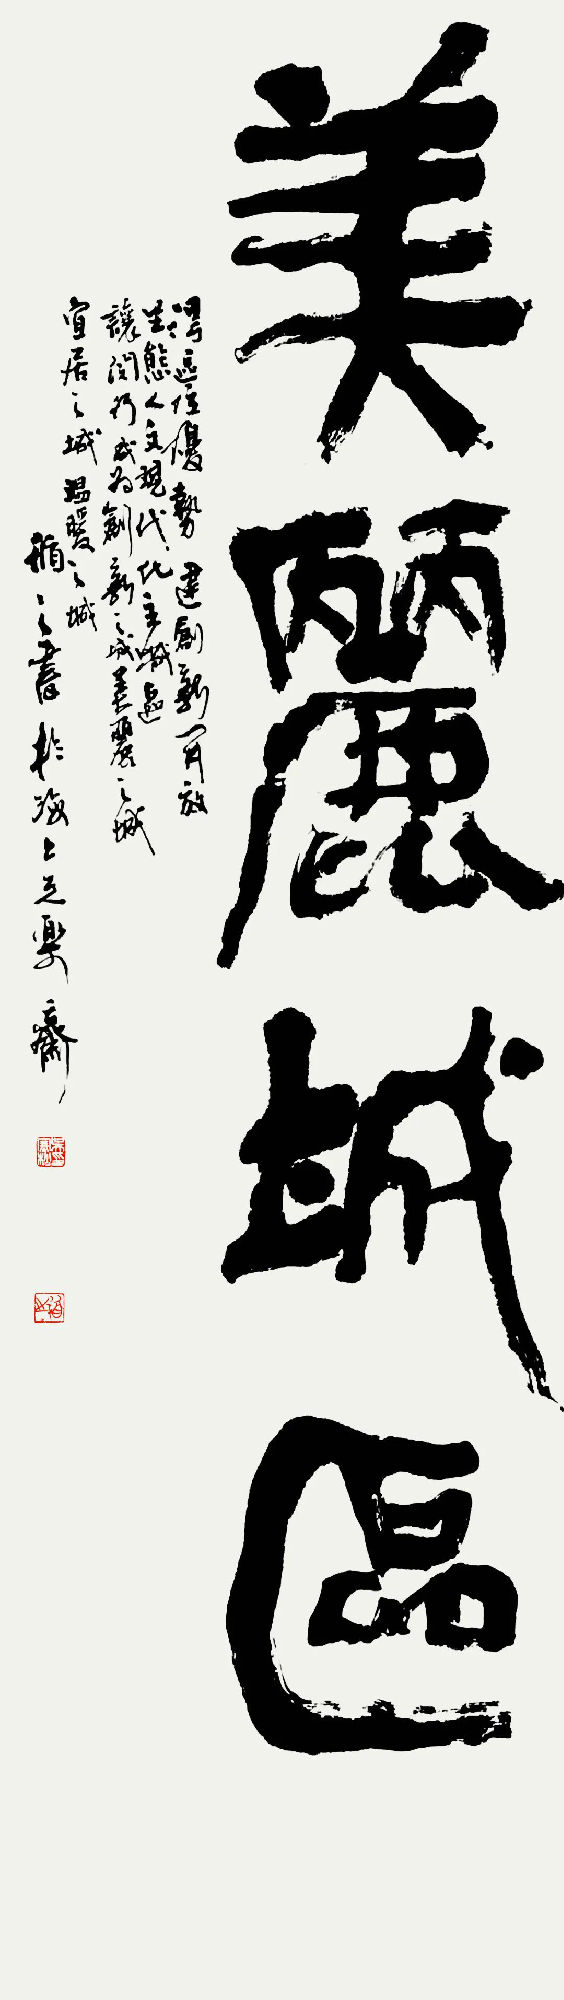 美麗城區
區位優勢 建創新開放
生態人文現代化主城區
讓閔行成為創新之城美麗之城
宜居之城溫暖之城
之書於海上 樂齋